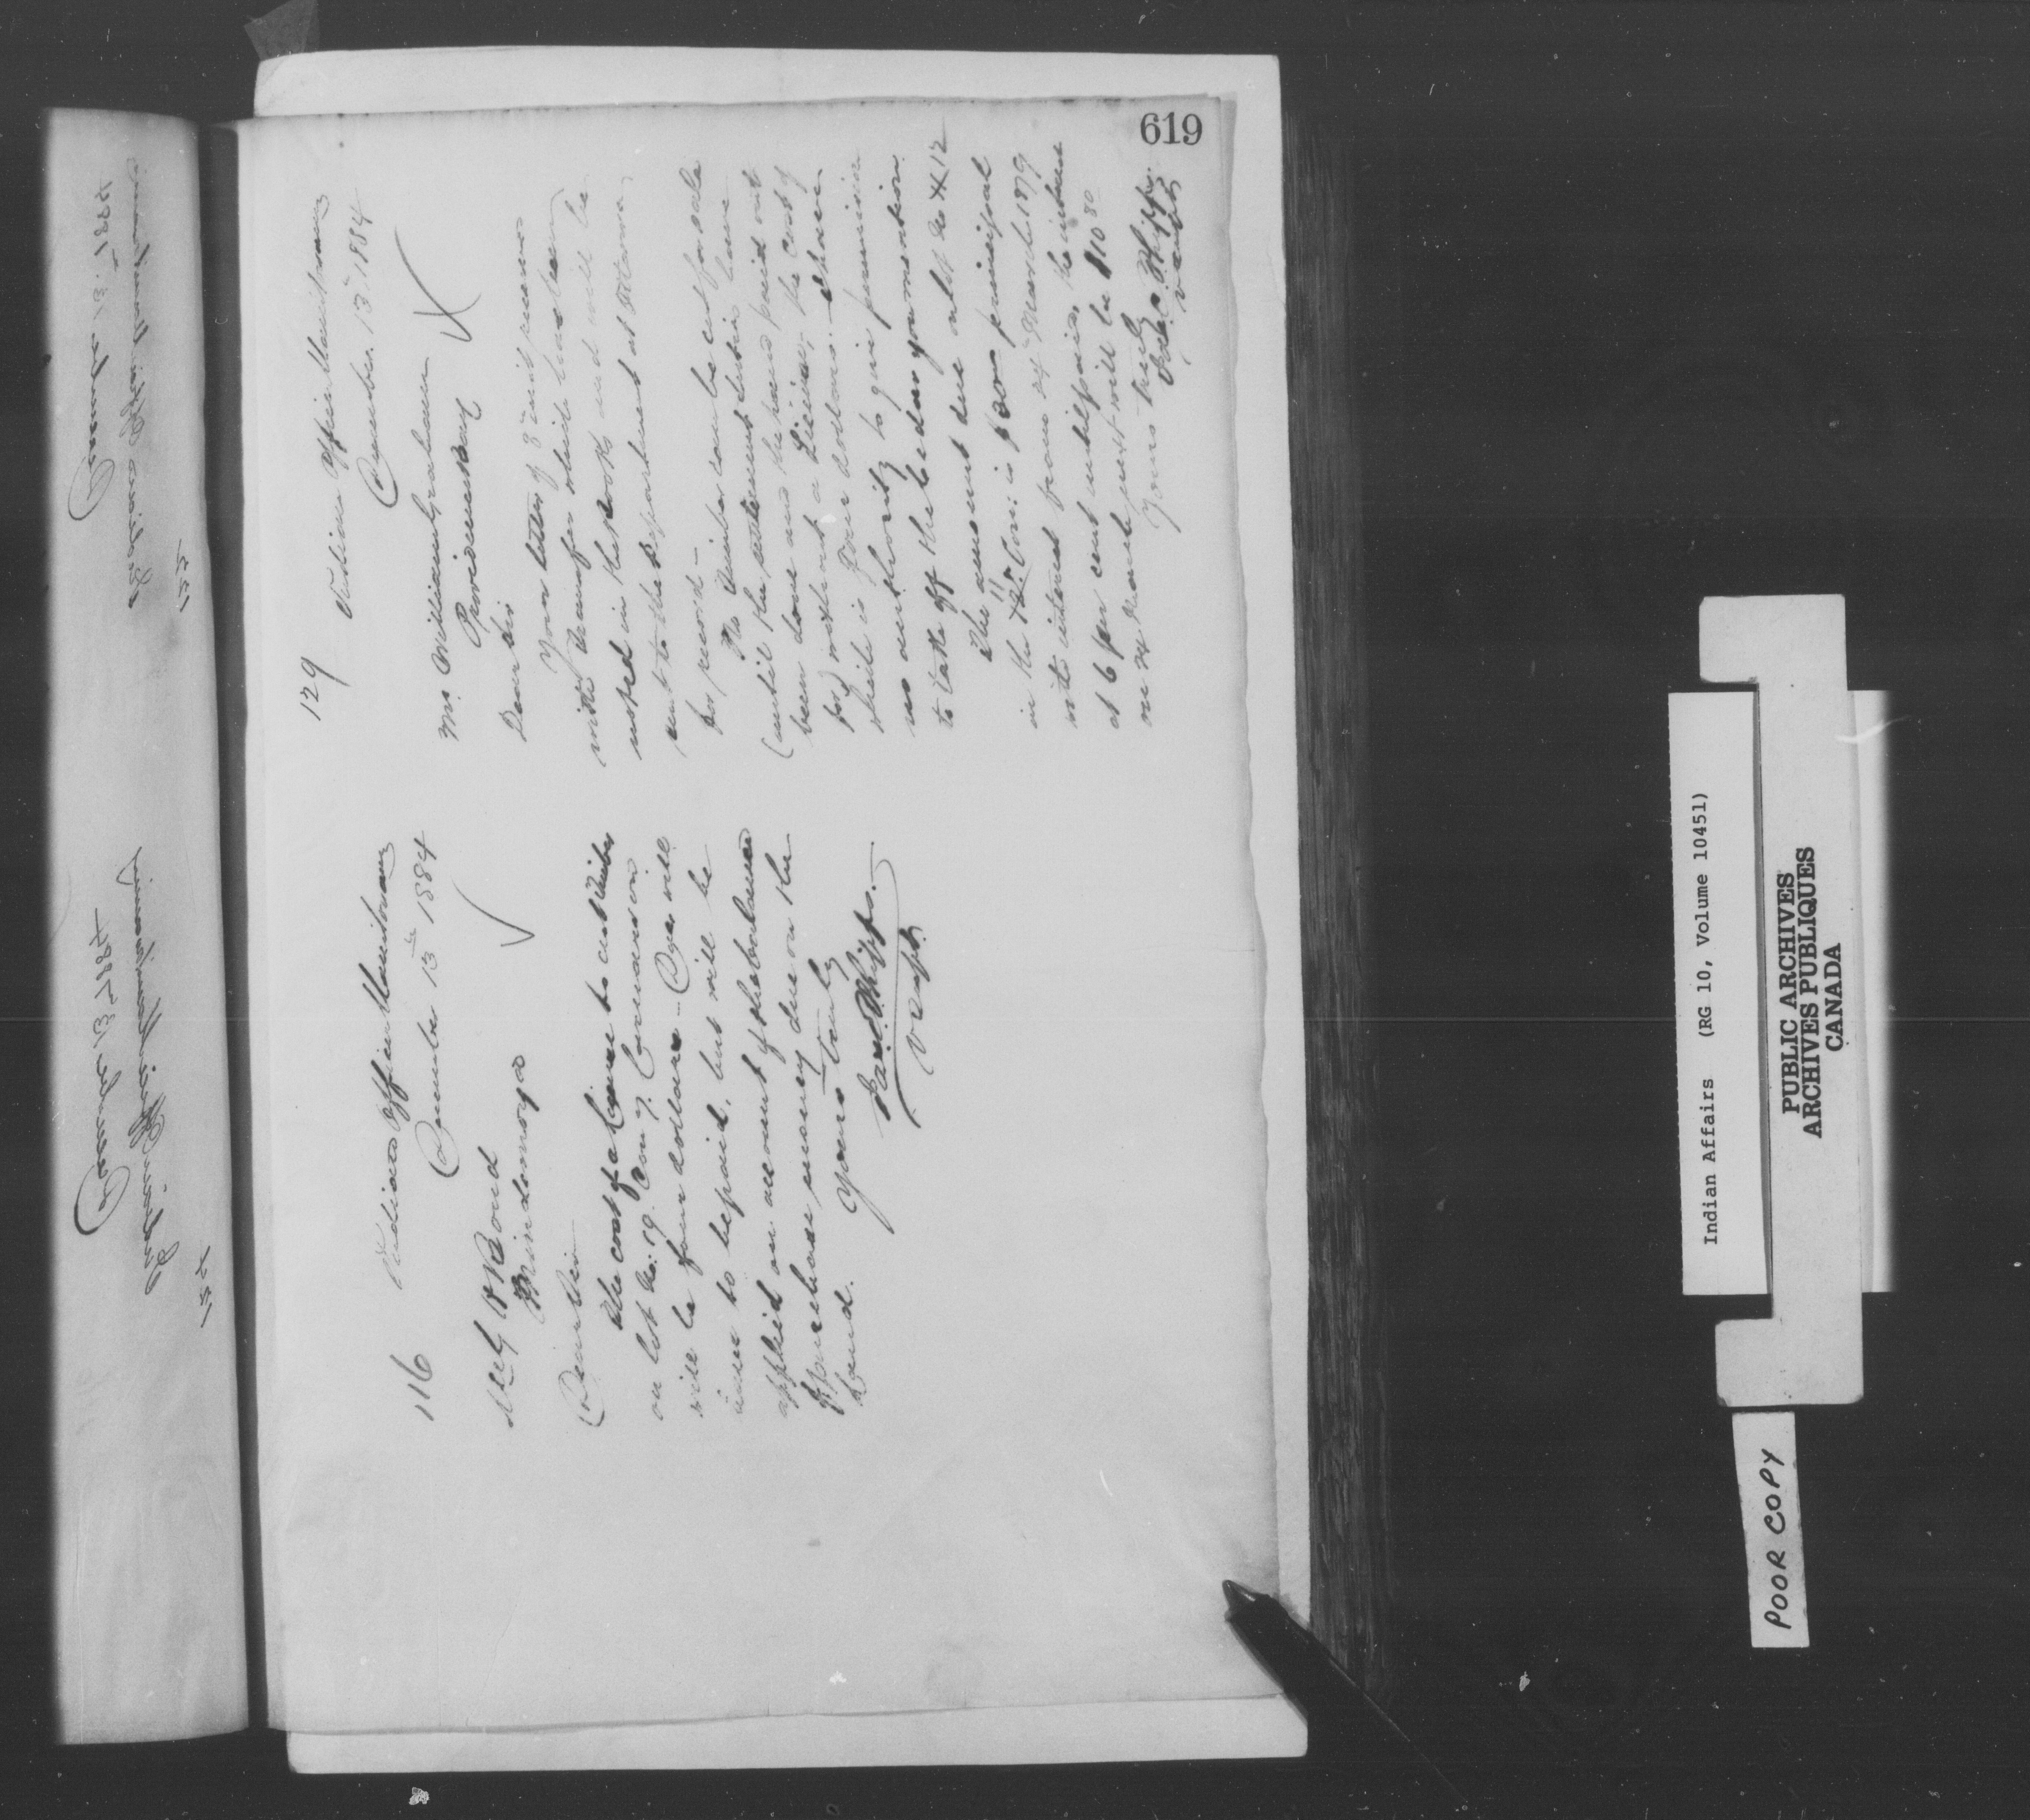 619
116
Indian Office Manitowaning
December 13th 1884
Mindemoya
Dear Sir
The cost of a License to cut timber
on lot No. 19. Con 7. Carnarvon
will be four dollars — Dues will
have to be paid, but will be
applied on account of the balance
of purchase money due on the
land.
Yours truly
Jas. C. Phipps.
V Supt.
129
Indian Office Manitowaning
December. 13th 1884
Mr. William Graham
Providence Bay
Dear Sir
Your letter of 8th inst
with transfer which has been
noted in the books and will be
sent to the Department at Ottawa
for record —
No timber can be cut for sale
(until the settlement duties have
been done and the land paid out
for) without a License, the cost of
which is Four dollars. I have
no authority to give permission
to take off the cedar you mention
The amount due on lot No 12
in the 11 Con: is $ principal
with interest from 24th March 1879
at 6 per cent until paid, the interest
on 24 March next will be $10 80
Yours truly
Jas. C. Phipps.
V Supt
December 13th 1884
Indian Office Manitowaning
Indian Affairs (RG 10, Volume 10451)
PUBLIC ARCHIVES
ARCHIVES PUBLIQUES
CANADA
POOR COPY